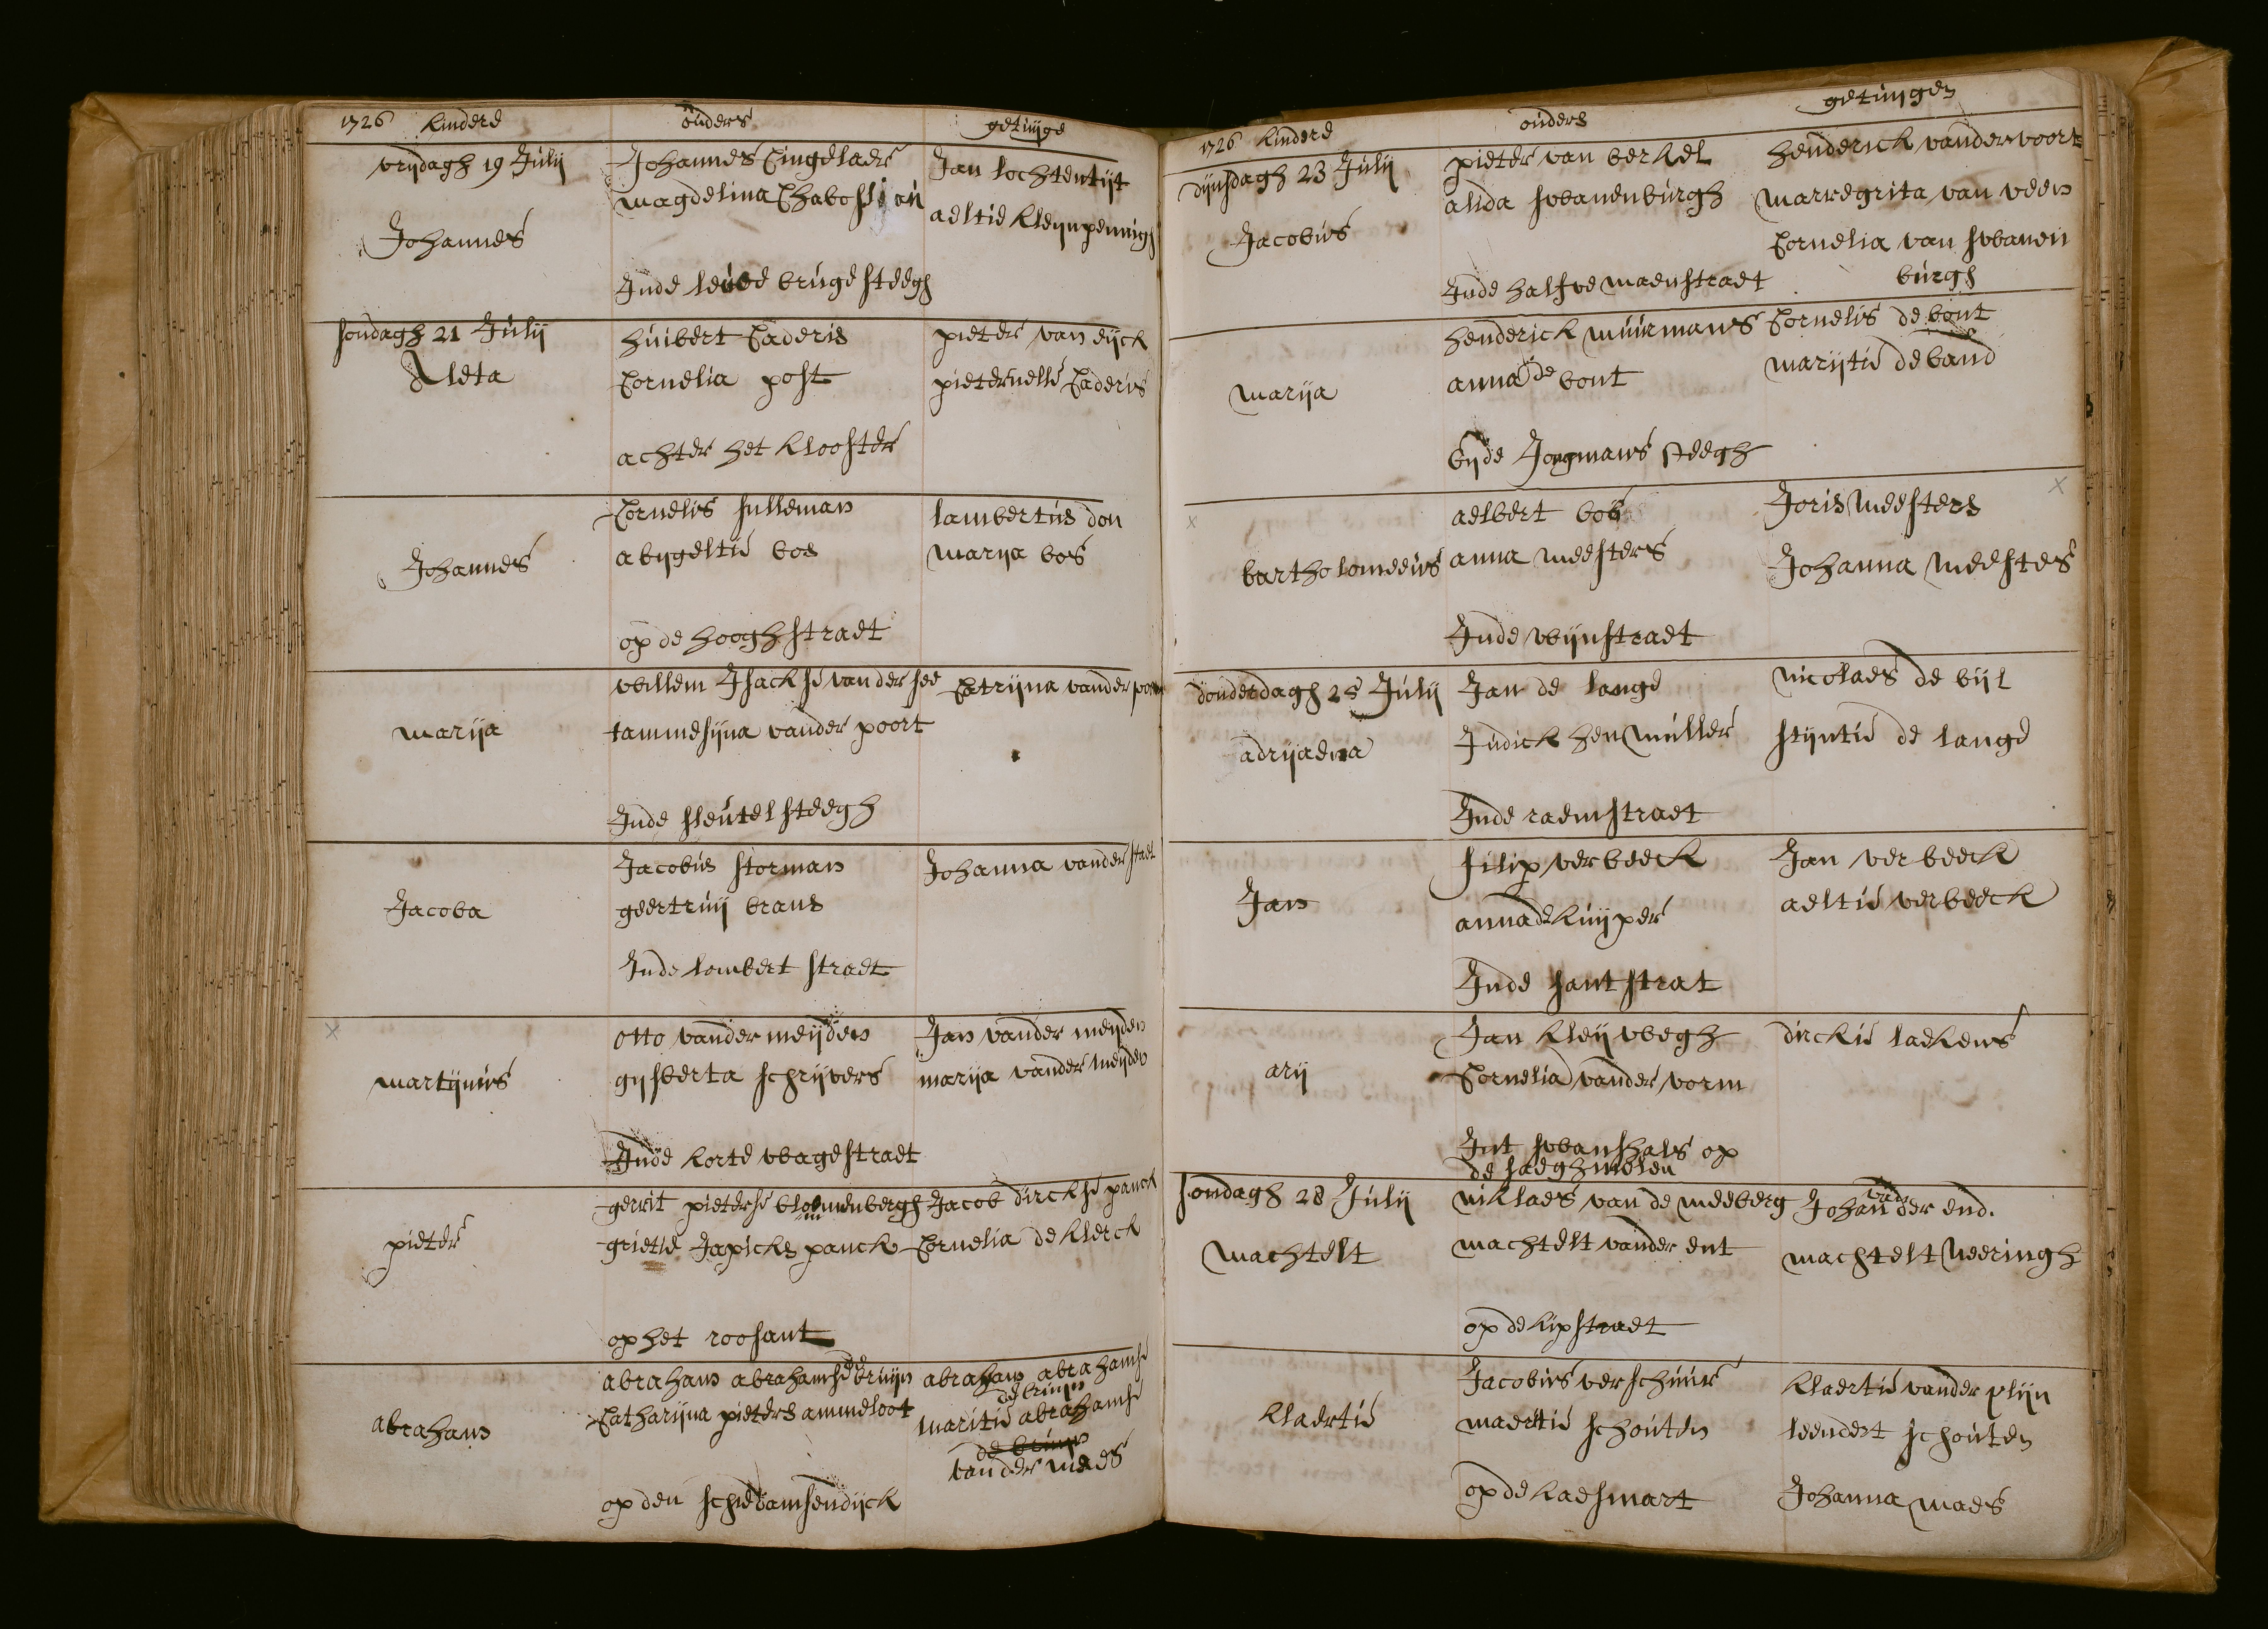 1726 kindere
ouders
getuijge
vrijdagh 19 Julij
Johannes
Johannes Cingelaer
magdelina
Inde leuve brugesteegh
Jan lochtentijt
aeltie kleijnpenningh
sondagh 21 Julij
Aleta
huibert Caderis
Cornelia post
achter het klooster
pieter van eijck
pieternelle Caderis
Johannes
Cornelis sulleman
abijgeltie bos
op de hooghstraet
lambertus don
marija bos
marija
willem Isackse van der see
tammesijna vander poort
Inde sleutelsteegh
Catrijna vander
Jacoba
Jacobus storman
geertruij brans
Inde lombert straet
Johanna vander staet
martijnus
otto vander meijden
gijsberta schrijvers
Inde korte wagestraet
Jan vander meijden
marija vander meijden
pieter
gerrit pieterse bloemenbergh
grietie Japicks panck
op het roosant
Jacob dirckse panck
Cornelia de klerck
abraham
abraham abrahamse de bruijn
Catharijna pieters ammeloot
op den schiedamsendijck
abraham abrahamse
de bruijn
maritie abrahamse
de bruijn
van der mees
1726 kindere
ouders
getuijgen
dijnsdagh 23 Julij
Jacobus
pieter van berkel
alida swanenburgh
Inde halfve maenstraet
henderick vandervoort
marregrita van veen
Cornelia van swanen
burgh
marija
henderick muurmans
anna de bont
bijde Jongmans steegh
Cornelis de bont
marijtie de band
bartholomeeus
aelbert bos
anna meesters
Inde wijnstraet
Joris meesters
Johanna meesters
donderdagh 25 Julij
adrijaena
Jan de lange
Judick hen muller
Inde raemstraet
nicolaes de bijl
stijntie de lange
Jan
filip verbeeck
anna de kuijper
Inde santstrat
Jan verbeeck
aeltie verbeeck
arij
Jan kleijwegh
Cornelia vander vorm
Int swanshals op
de saeghmolen
dirckie laekens
sondagh 28 Julij
machtelt
niklaes van de meeberg
machtelt vander ent
op de kipstraet
Johan van der end.
machtelt Neeringh
klaertie
Jacobus verschuur
maertie schouten
op de kaesmart
klaertie vander plijn
leendert schouten
Johanna maes